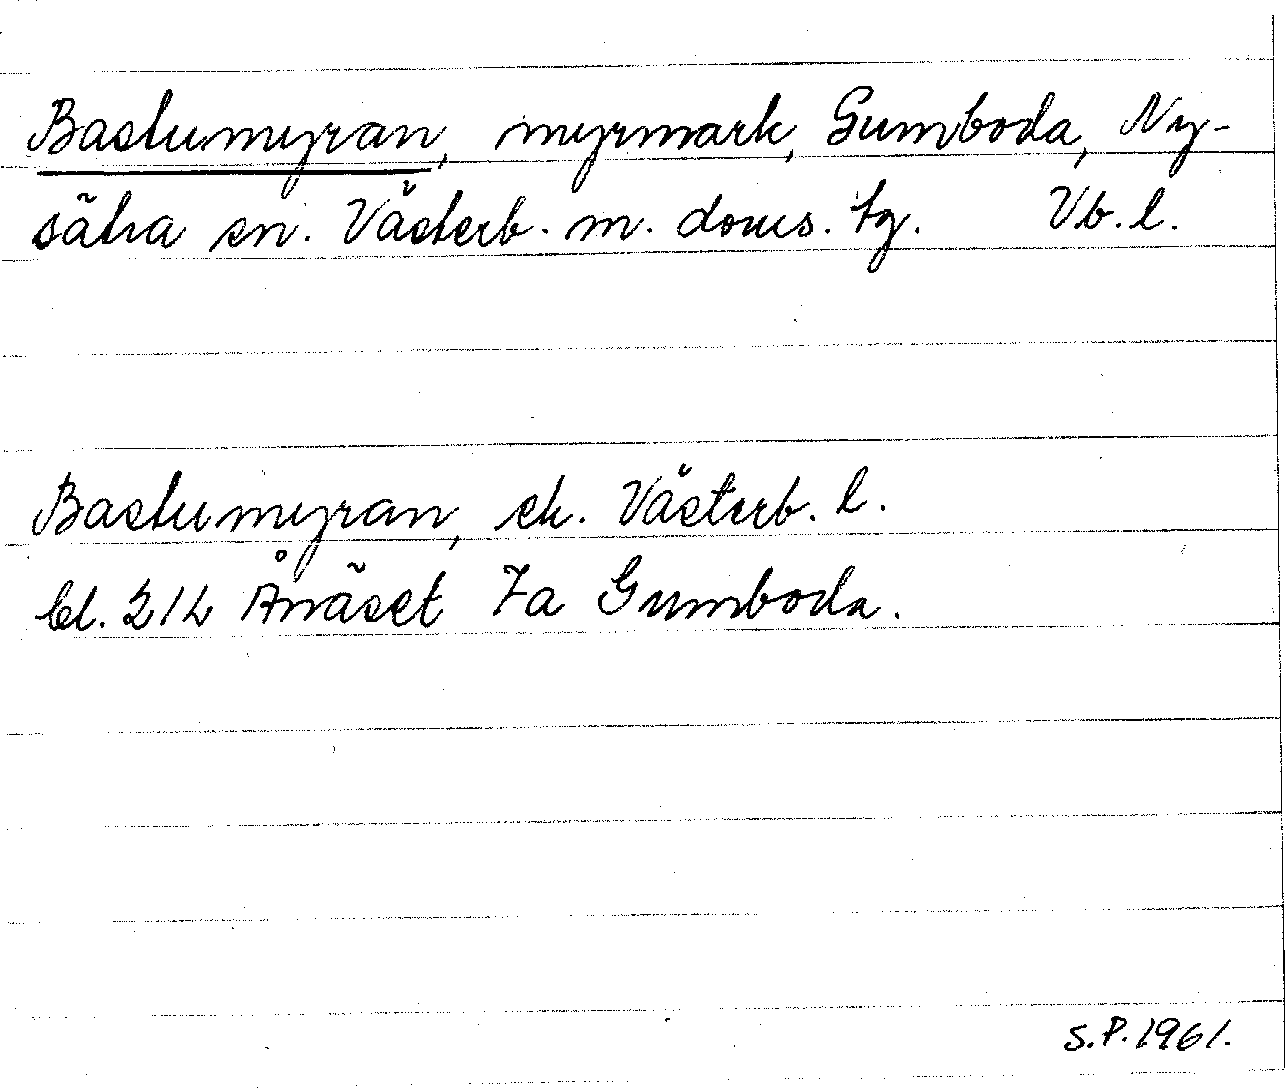 Bastumyran, myrmark, Gumboda, Ny-
sätra sn. Västerb. m. doms. tg. Vb. l.
Bastumyran, ek. Västerb. l.
bl. 212 Ånäset 7a Gumboda.
S.P. 1961.